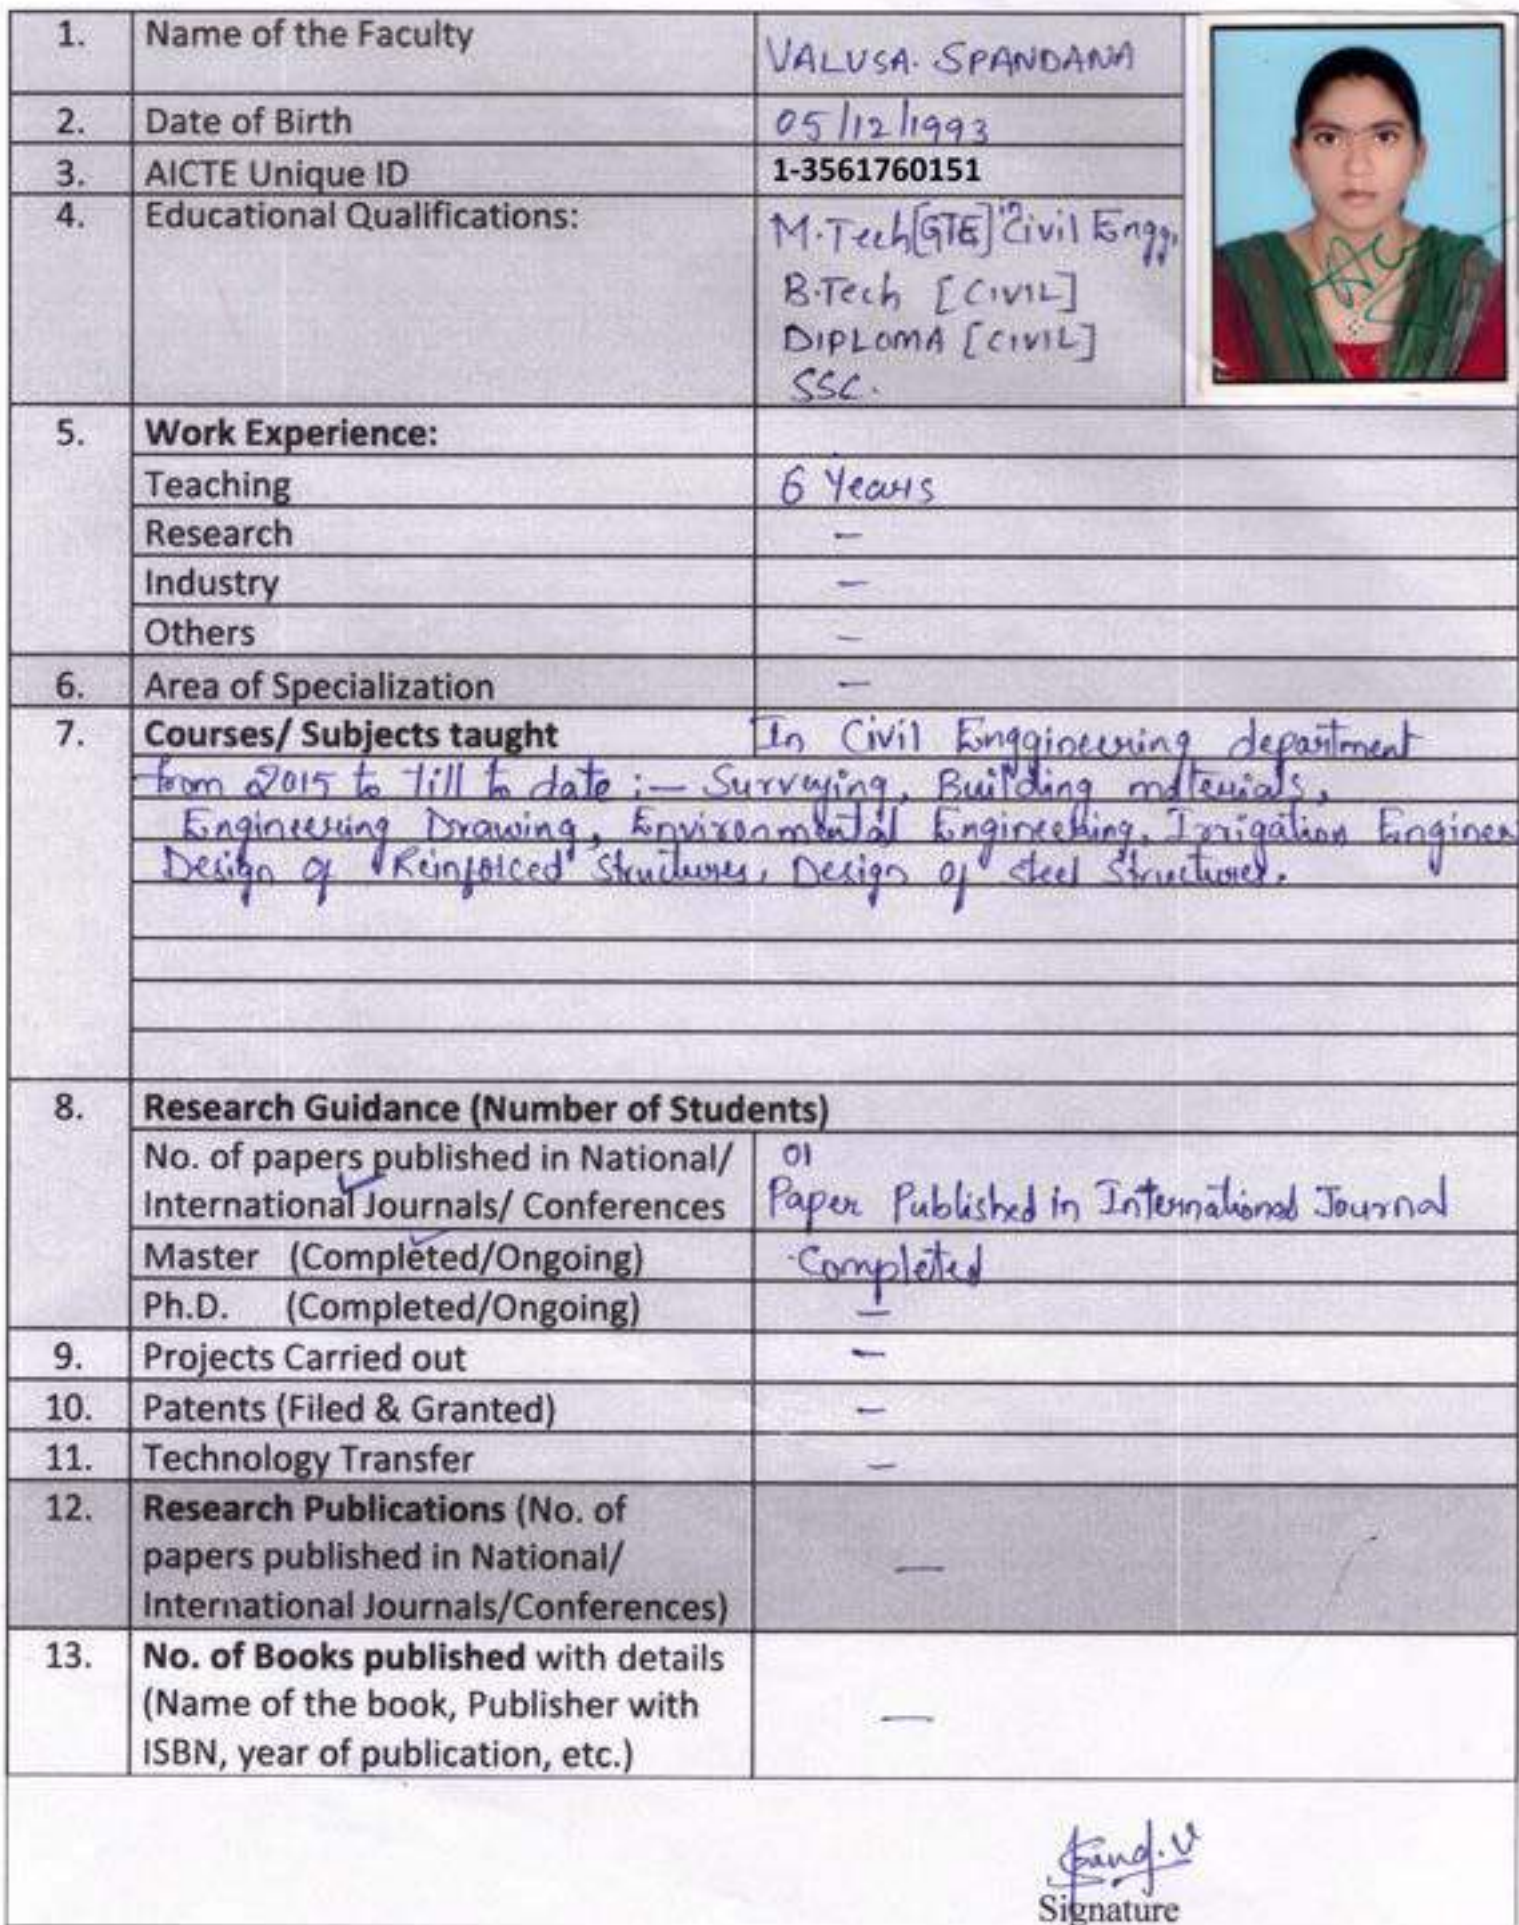 1. Name of the Faculty VALUSA. SPANDANA
2. Date of Birth 05/12/1993
3. AICTE Unique ID 1-3561760151
4. Educational Qualifications: M.Tech[GTE] in Civil Engg,
B.Tech [CIVIL]
DIPLOMA [CIVIL]
SSC.
5. Work Experience:
Teaching 6 Years
Research –
Industry –
Others –
6. Area of Specialization –
7. Courses/ Subjects taught In Civil Enggineering department
from 2015 to till to date :– Surveying, Building materials,
Engineering Drawing, Environmental Engineering, Irrigation Enginee
Design of Reinforced Structures, Design of steel structures.
8. Research Guidance (Number of Students)
No. of papers published in National/ 01
International Journals/ Conferences Paper Published in International Journal
Master (Completed/Ongoing) Completed
Ph.D. (Completed/Ongoing) –
9. Projects Carried out –
10. Patents (Filed & Granted) –
11. Technology Transfer –
12. Research Publications (No. of
papers published in National/ –
International Journals/Conferences)
13. No. of Books published with details
(Name of the book, Publisher with –
ISBN, year of publication, etc.)
Signature